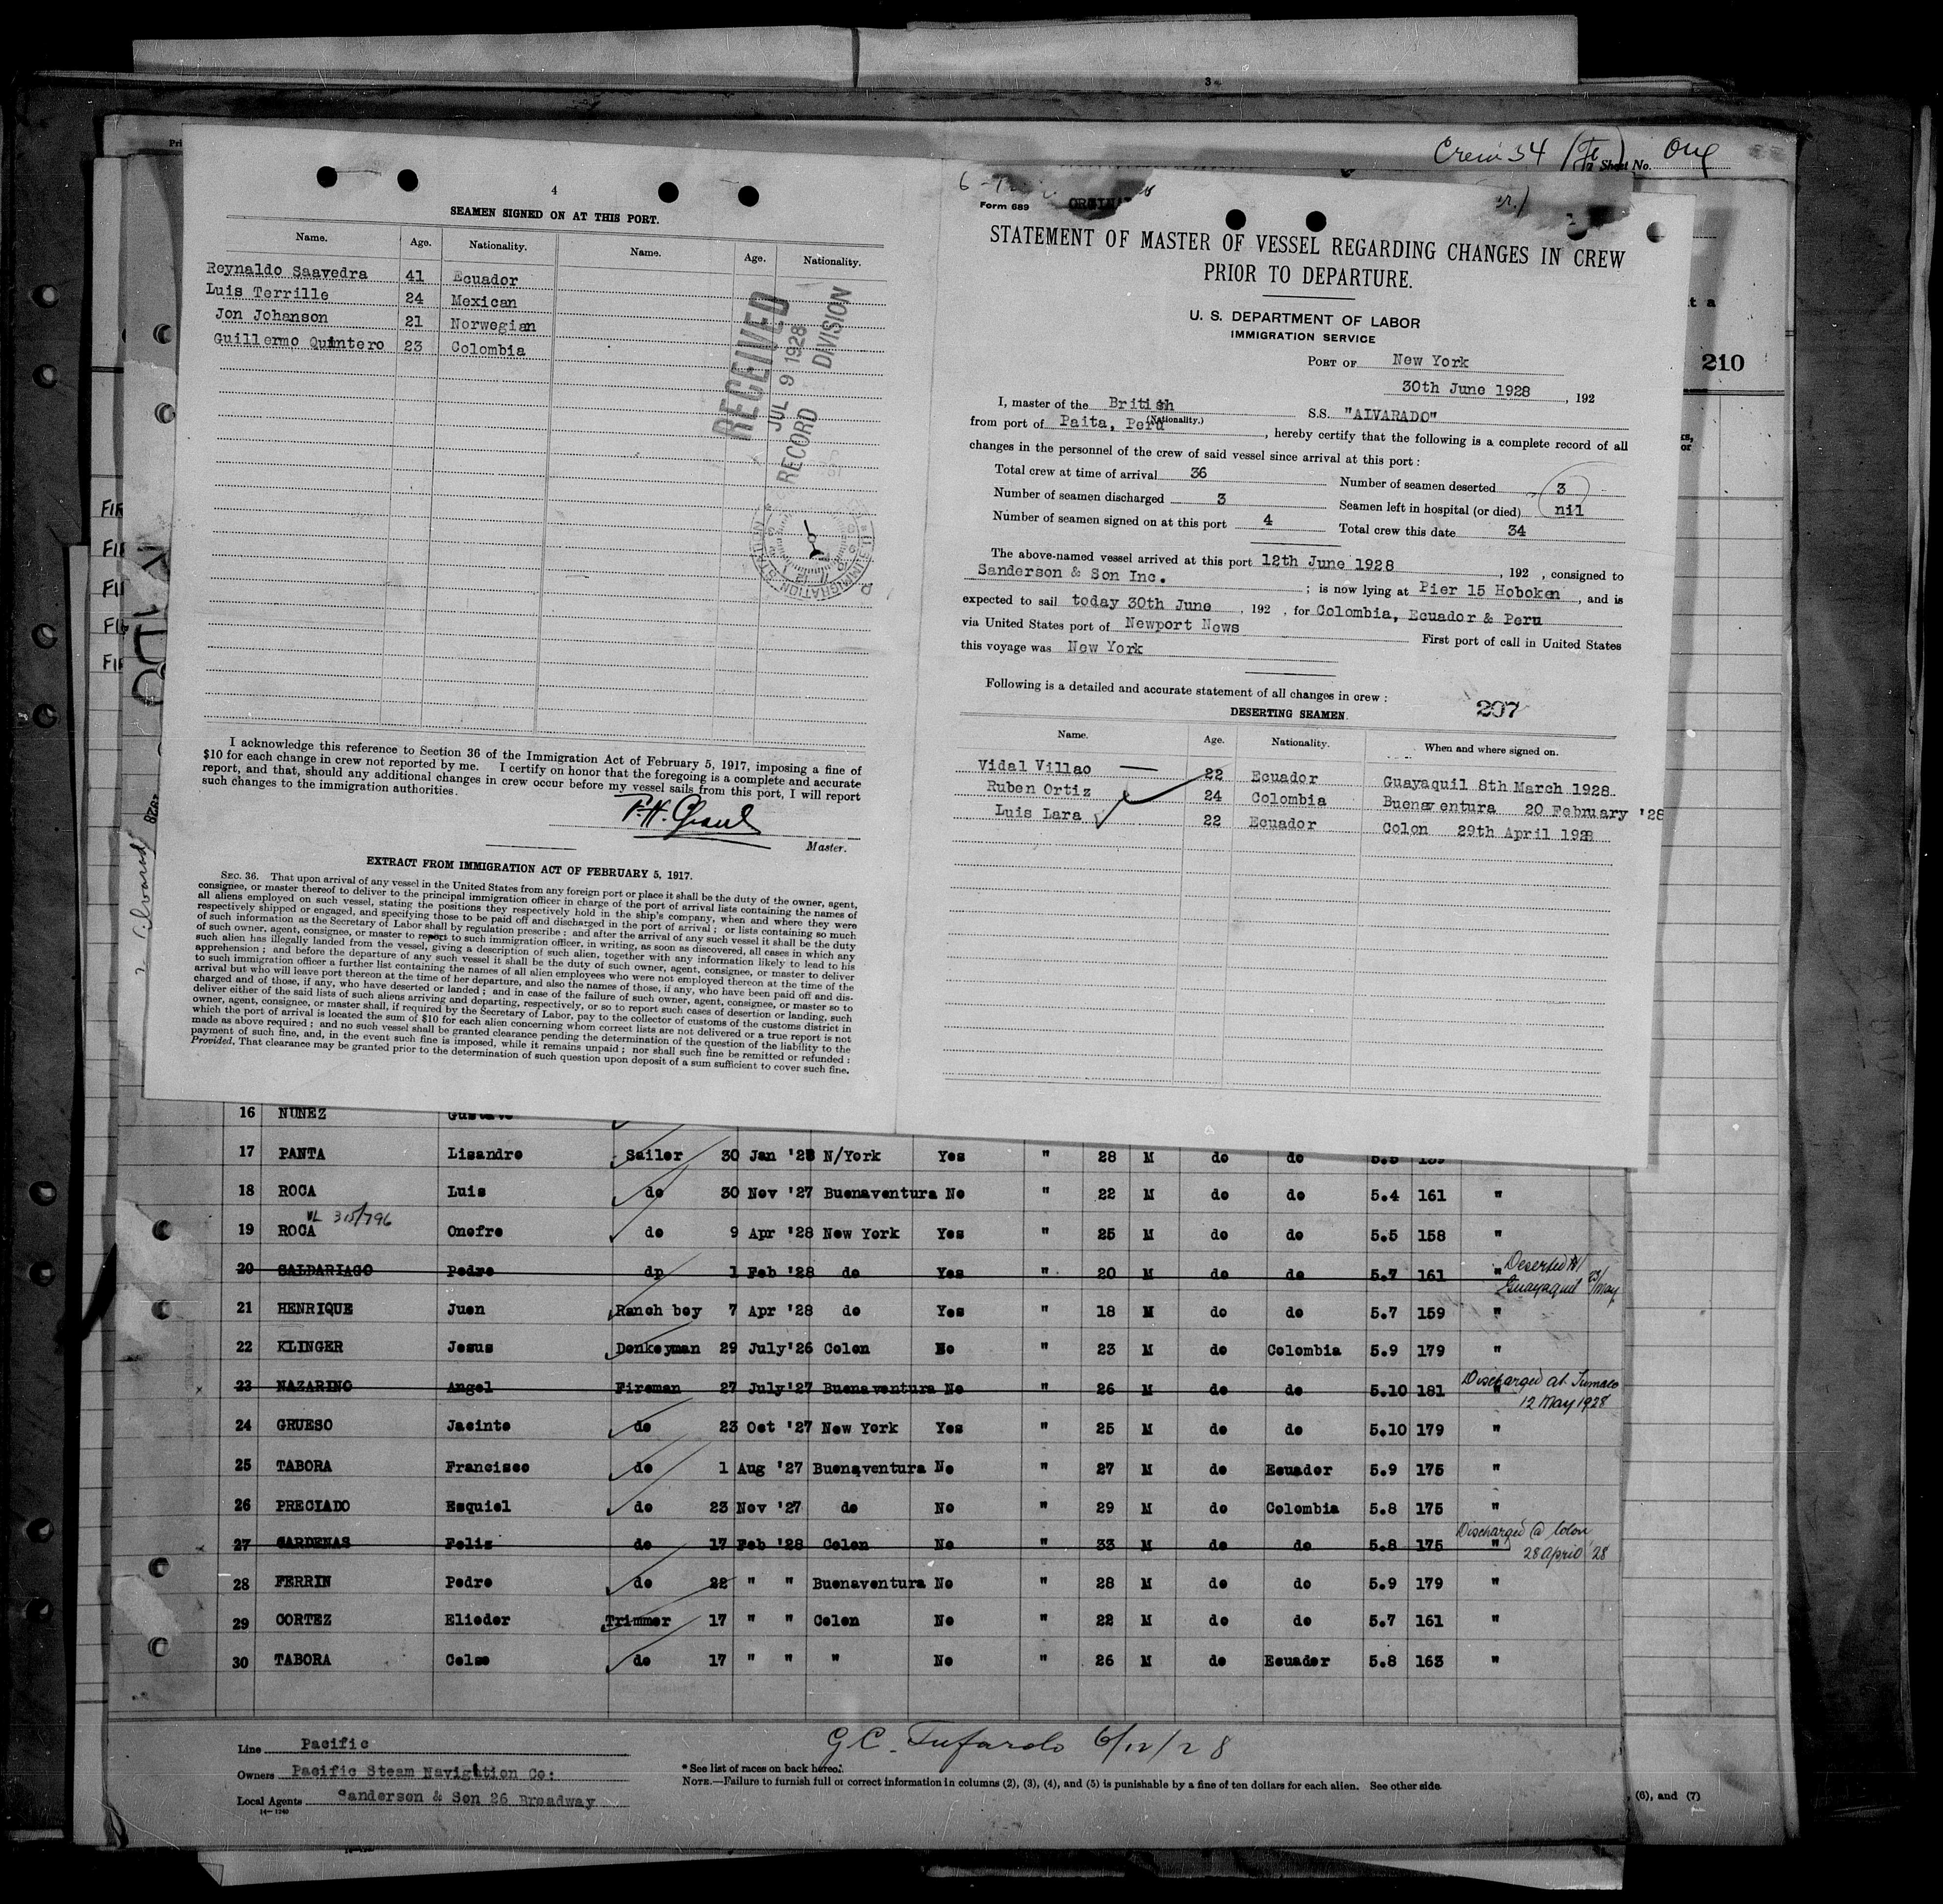 3
Crew 34
Sheet No. Orig
210
4
SEAMEN SIGNED ON AT THIS PORT.
Name. Age. Nationality. Name. Age. Nationality.
Reynaldo Saavedra 41 Ecuador
Luis Terrille 24 Mexican
Jon Johanson 21 Norwegian
Guillermo Quintero 23 Colombia
RECEIVED
JUL 9 1928
RECORD DIVISION
I acknowledge this reference to Section 36 of the Immigration Act of February 5, 1917, imposing a fine of
$10 for each change in crew not reported by me. I certify on honor that the foregoing is a complete and accurate
report, and that, should any additional changes in crew occur before my vessel sails from this port, I will report
such changes to the immigration authorities.
Master.
EXTRACT FROM IMMIGRATION ACT OF FEBRUARY 5, 1917.
SEC. 36. That upon arrival of any vessel in the United States from any foreign port or place it shall be the duty of the owner, agent,
consignee, or master thereof to deliver to the principal immigration officer in charge of the port of arrival lists containing the names of
all aliens employed on such vessel, stating the positions they respectively hold in the ship's company, when and where they were
respectively shipped or engaged, and specifying those to be paid off and discharged in the port of arrival; or lists containing so much
of such information as the Secretary of Labor shall by regulation prescribe; and after the arrival of any such vessel it shall be the duty
of such owner, agent, consignee, or master to report to such immigration officer, in writing, as soon as discovered, all cases in which any
such alien has illegally landed from the vessel, giving a description of such alien, together with any information likely to lead to his
apprehension; and before the departure of any such vessel it shall be the duty of such owner, agent, consignee, or master to deliver
to such immigration officer a further list containing the names of all alien employees who were not employed thereon at the time of the
arrival but who will leave port thereon at the time of her departure, and also the names of those, if any, who have been paid off and dis-
charged and of those, if any, who have deserted or landed; and in case of the failure of such owner, agent, consignee, or master so to
deliver either of the said lists of such aliens arriving and departing, respectively, or so to report such cases of desertion or landing, such
owner, agent, consignee, or master shall, if required by the Secretary of Labor, pay to the collector of customs of the customs district in
which the port of arrival is located the sum of $10 for each alien concerning whom correct lists are not delivered or a true report is not
made as above required; and no such vessel shall be granted clearance pending the determination of the question of the liability to the
payment of such fine, and, in the event such fine is imposed, while it remains unpaid; nor shall such fine be remitted or refunded:
Provided, That clearance may be granted prior to the determination of such question upon deposit of a sum sufficient to cover such fine.
Form 689
STATEMENT OF MASTER OF VESSEL REGARDING CHANGES IN CREW
PRIOR TO DEPARTURE.
U. S. DEPARTMENT OF LABOR
IMMIGRATION SERVICE
PORT OF New York
30th June 1928, 192
I, master of the British S.S. "ALVARADO"
(Nationality.)
from port of Paita, Peru, hereby certify that the following is a complete record of all
changes in the personnel of the crew of said vessel since arrival at this port:
Total crew at time of arrival 36 Number of seamen deserted 3
Number of seamen discharged 3 Seamen left in hospital (or died) nil
Number of seamen signed on at this port 4 Total crew this date 34
The above-named vessel arrived at this port 12th June 1928, 192 , consigned to
Sanderson & Son Inc. ; is now lying at Pier 15 Hoboken, and is
expected to sail today 30th June, 192 , for Colombia, Ecuador & Peru
via United States port of Newport News First port of call in United States
this voyage was New York
Following is a detailed and accurate statement of all changes in crew:
207
DESERTING SEAMEN.
Name. Age. Nationality. When and where signed on.
Vidal Villao 22 Ecuador Guayaquil 8th March 1928.
Ruben Ortiz 24 Colombia Buenaventura 20 February '28
Luis Lara 22 Ecuador Colon 29th April 1928
16 NUNEZ Gustavo
17 PANTA Lisandro Sailor 30 Jan '28 N/York Yes " 28 M do do 5.5 159
18 ROCA Luis do 30 Nov '27 Buenaventura No " 22 M do do 5.4 161 "
VL 315/796
19 ROCA Onofre do 9 Apr '28 New York Yes " 25 M do do 5.5 158 "
20 SALDARIAGO Pedro do 1 Feb '28 do Yes " 20 M do do 5.7 161 " Deserted At Guayaquil 23/May
21 HENRIQUE Juan Ranch boy 7 Apr '28 do Yes " 18 M do do 5.7 159 "
22 KLINGER Jesus Donkeyman 29 July'26 Colon No " 23 M do Colombia 5.9 179 "
23 NAZARINO Angel Fireman 27 July'27 Buenaventura No " 26 M do do 5.10 181 " Discharged at Tumaco 12 May 1928
24 GRUESO Jacinto do 23 Oct '27 New York Yes " 25 M do do 5.10 179 "
25 TABORA Francisco do 1 Aug '27 Buenaventura No " 27 M do Ecuador 5.9 175 "
26 PRECIADO Esquiel do 23 Nov '27 do No " 29 M do Colombia 5.8 175 "
27 CARDENAS Feliz do 17 Feb '28 Colon No " 33 M do do 5.8 175 " Discharged @ Colon 28 April '28
28 FERRIN Pedro do 22 " " Buenaventura No " 28 M do do 5.9 179 "
29 CORTEZ Elieder Trimmer 17 " " Colon No " 22 M do do 5.7 161 "
30 TABORA Celso do 17 " " " No " 26 M do Ecuador 5.8 163 "
G.C. Tufarolo 6/12/28
Line Pacific
Owners Pacific Steam Navigation Co:
Local Agents Sanderson & Son 26 Broadway
14-1240
* See list of races on back hereof.
NOTE.—Failure to furnish full or correct information in columns (2), (3), (4), and (5) is punishable by a fine of ten dollars for each alien. See other side.
(6), and (7)